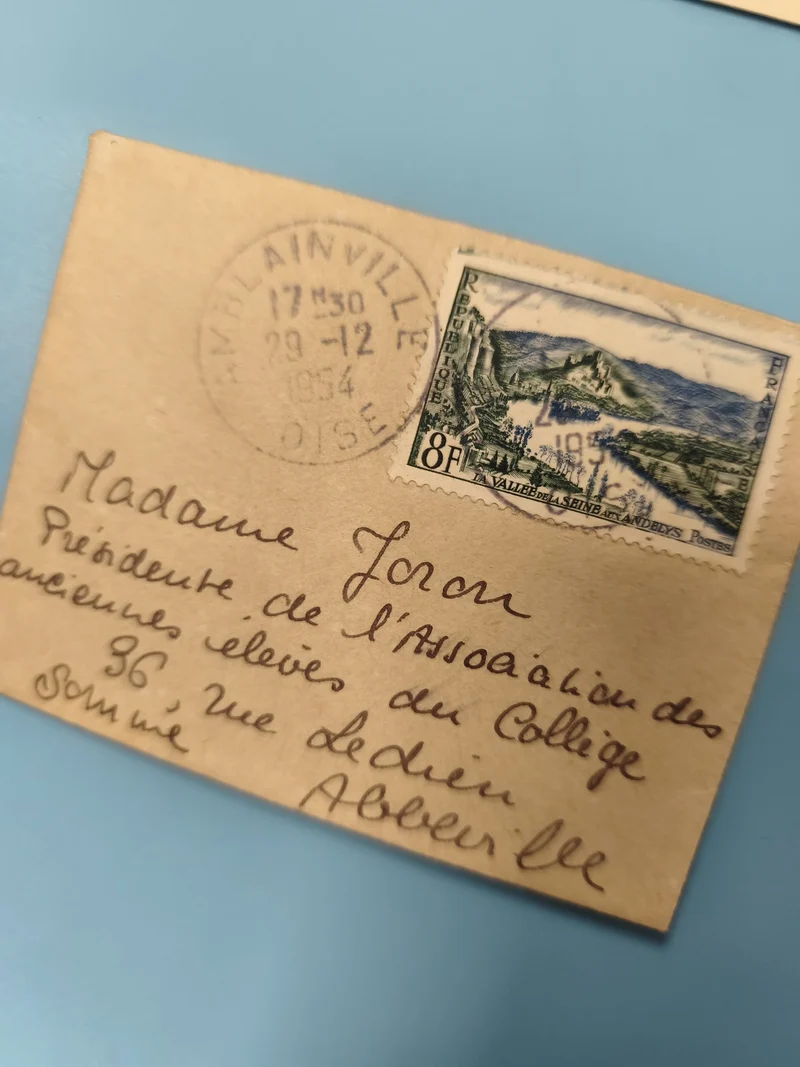 AMBLAINVILLE
17 H 30
29 -12
1954
OISE
REPUBLIQUE
FRANCAISE
8F
LA VALLEE DE LA SEINE AUX ANDELYS POSTES
Madame Joron
Présidente de l'Association des
anciennes élèves du Collège
36, rue Ledien
Abbeville
Somme